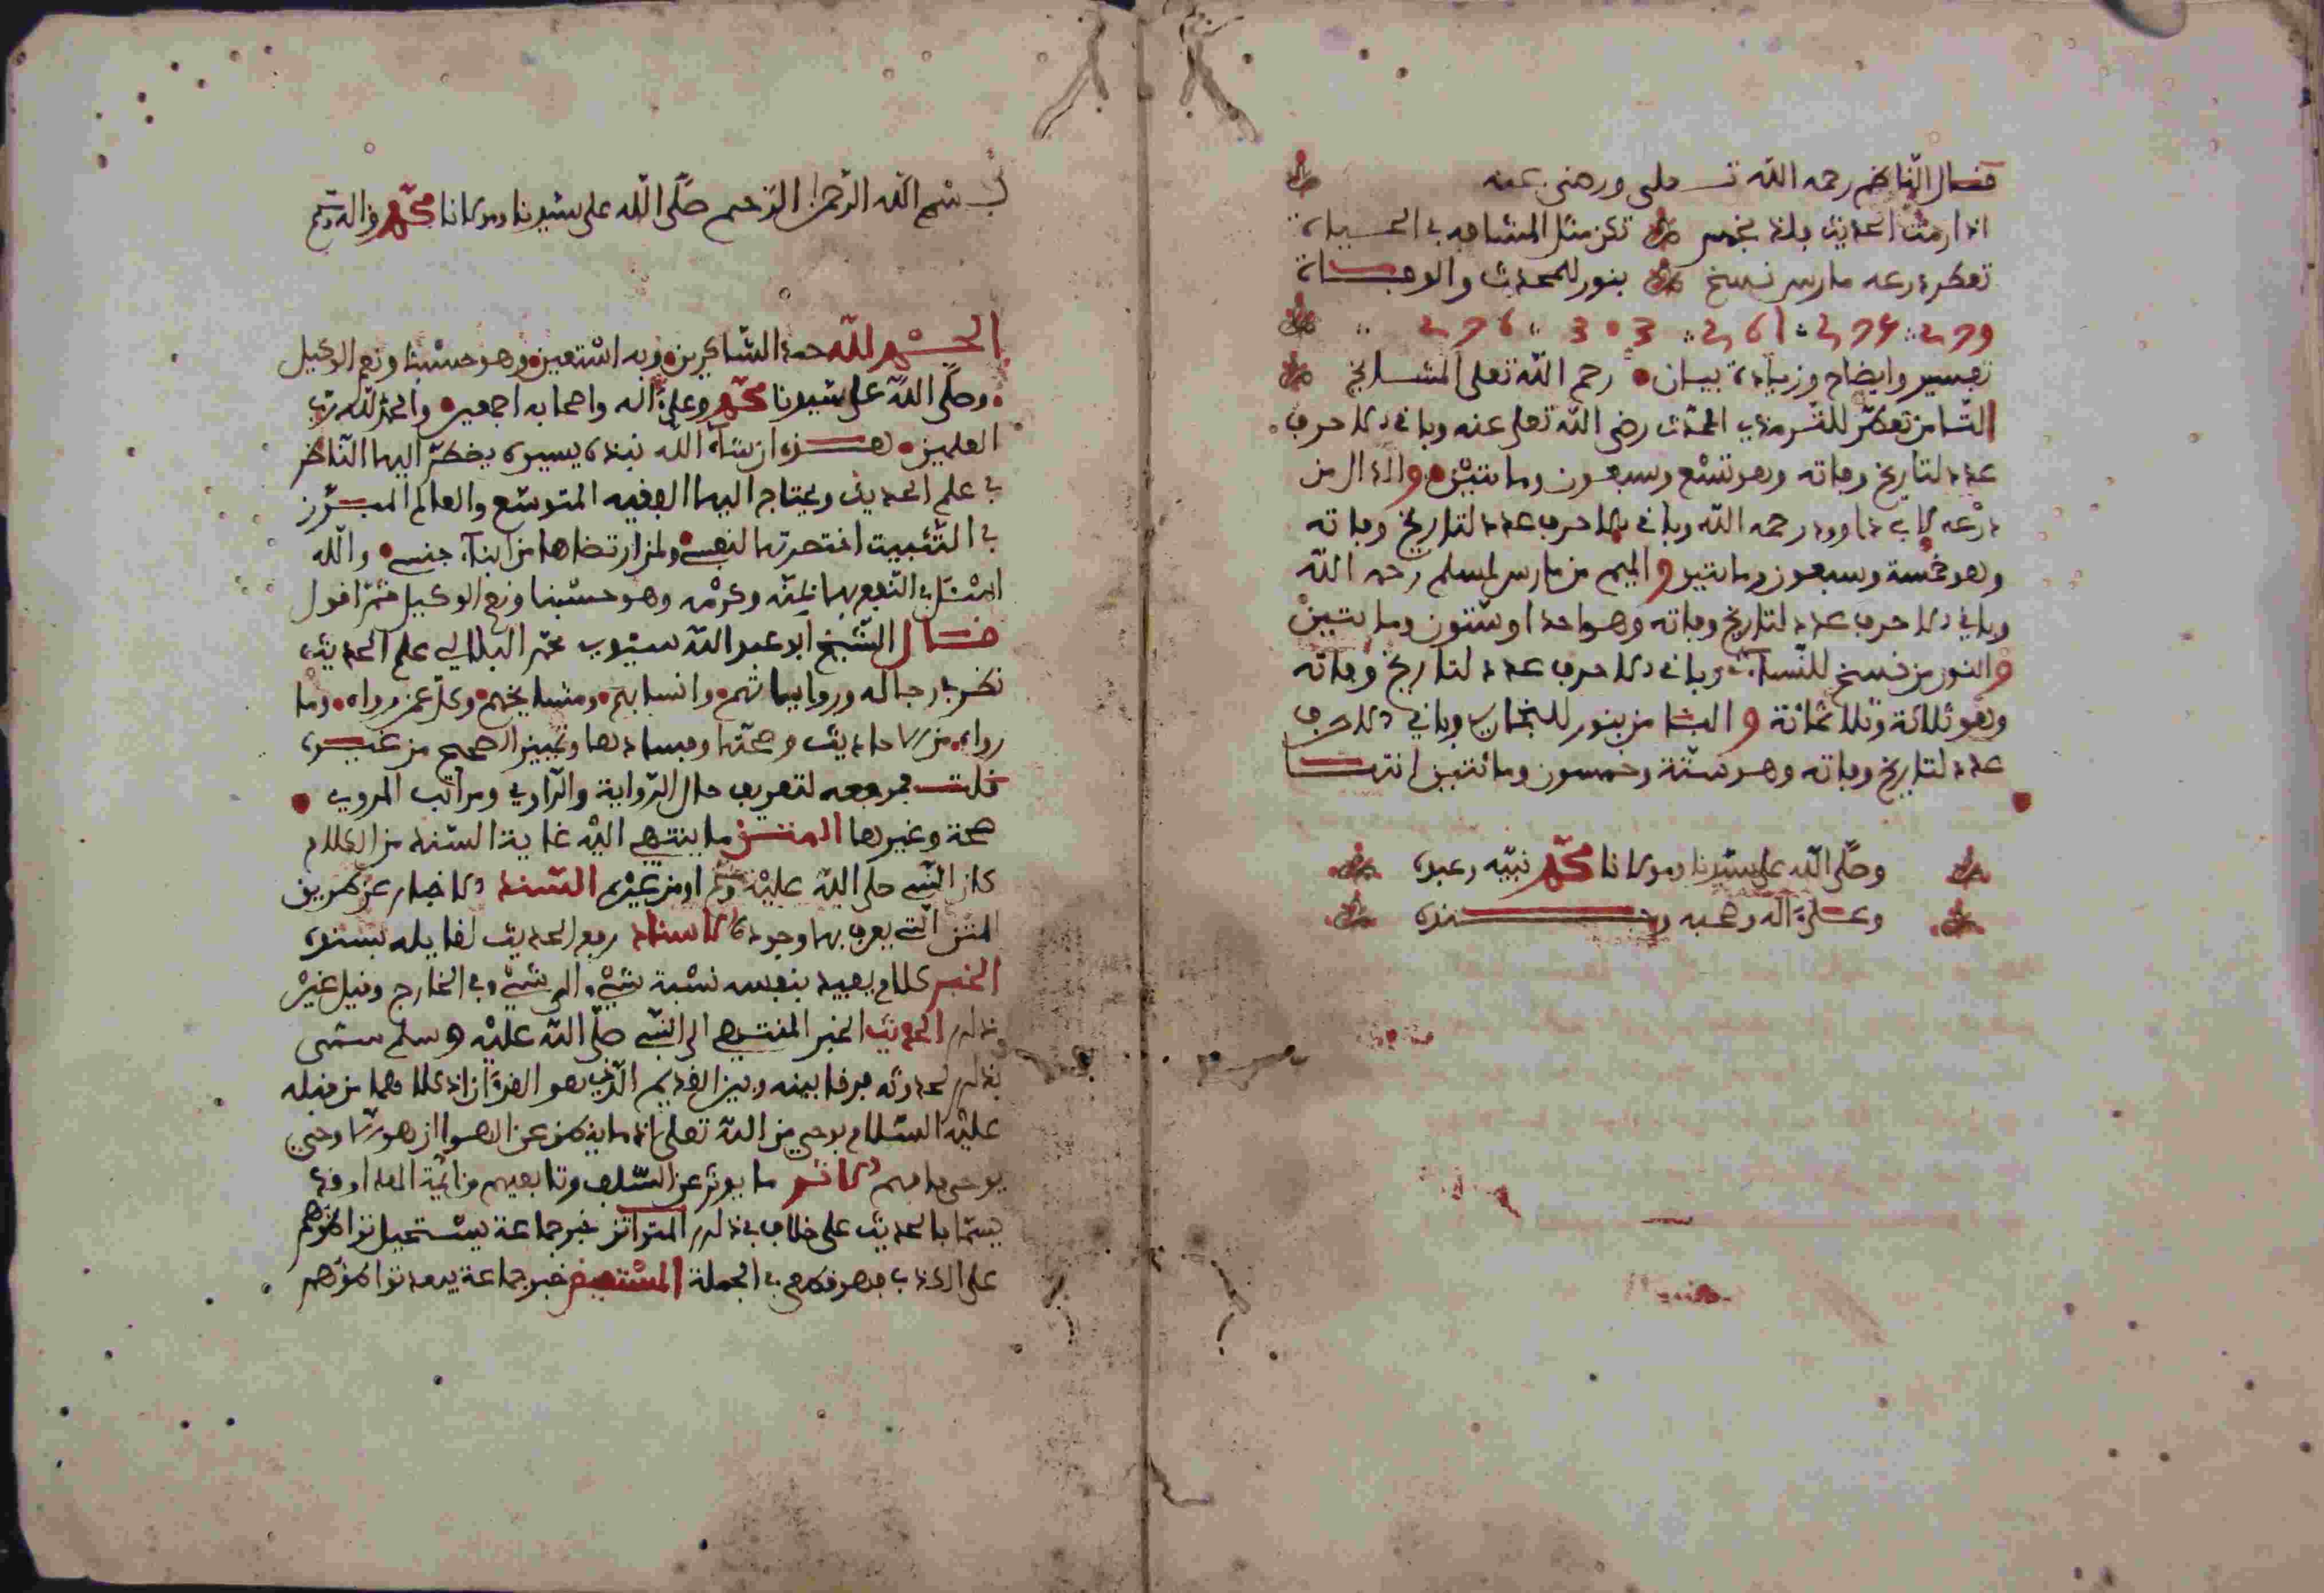 قال الناظم رحمه الله تعلى ورضي عنه
اذا رمت الحديث بلاد بخمس تكن مثل المشافه في الحياة
تعكر درعه مارس نسخ بنور للمحدث والوفاة
279 : 275 : 261 : 303 : 256
تفسير وايضاح وزيادة بيان رحم الله تعلى المشايخ
التا من تعكر للترمذي المحدث رضي الله تعلى عنه وباقي الاحرف
عدد لتاريخ وفاته وهو تسع وسبعون ومايتين والدال من
درعه لابي داوود رحمه الله وباقي الاحرف عدد لتاريخ وفاته
وهو خمسة وسبعون ومايتين والميم من مارس لمسلم رحمه الله
وباقي الاحرف عدد لتاريخ وفاته وهو احدا وستون ومايتين
والنون من نسخ للنساءي وباقي الاحرف عدد لتاريخ وفاته
وهو ثلاثة وثلاثمائة والبا من بنور للبخاري وباقي الاحرف
عدد لتاريخ وفاته وهو ستة وخمسون ومائتين انتهى
وصلى الله على سيدنا ومولانا محمد نبيه وعبده
وعلى آله وصحبه وجنده
بسم الله الرحمن الرحيم صلى الله على سيدنا ومولانا محمد وآله وسلم
الحمد لله حمد الشاكرين وبه استعين وهو حسبنا ونعم الوكيل
وصلى الله على سيدنا محمد وعلى آله واصحابه اجمعين والحمد لله رب
العلمين هذه ان شاء الله نبذة يسيرة يضطر اليها الناظر
في علم الحديث ويحتاج اليها الفقيه المتوسع والعالم المبرز
في التثبيت اختصرتها لنفسي ولمن ارتضاها من ابناء جنسي والله
اسئل في النفع بها بمنه وكرمه وهو حسبنا ونعم الوكيل ثم اقول
قال الشيخ ابو عبد الله سيدي محمد البلالي علم الحديث
نظر في رجاله ورواياتهم وانسابهم ومشايخهم وكل عمن رواه وما
رواه من الاحاديث وصحتها وفسادها وتمييز الصحيح من غيره
قلت مجموعه لتعريف حال الرواية والراوي ومراتب المروي
صحة وغيرها المتن ما ينتهي اليه غاية السند من الكلام
كان النبي صلى الله عليه وسلم او من غيره السند الاخبار عن طريق
المتن التي يعرف بها وجوده الاسناد رفع الحديث لقايله بسنده
الخبر كلام يفيد بنفسه نسبة شيء والى شيء في الخارج وقيل غير
ذلك الحديث الخبر المنتهي الى النبي صلى الله عليه وسلم سمي
بذلك لحدوثه فرقا بينه وبين القديم الذي هو القرءان اذ كلاهما من قبله
عليه السلام بوحي من الله تعلى اذ ما ينطق عن الهوى ان هو الا وحي
يوحى فافهم الاثر ما يوثر عن السلف وتابعيهم من ائمة الملة وقد
يسما بالحديث على خلاف في ذلك المتواتر خبر جماعة يستحيل تواطؤهم
على الكذب فهو قطعي في الجملة المستفيض خبر جماعة يبعد تواطؤهم